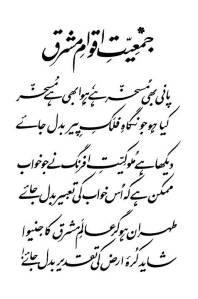 جمعیّتِ اقوامِ مشرق
پانی بھی مُسخّر ہے ہوا بھی ہے مُسخّر
کیا ہو جو نگاہِ فلکِ پیر بدل جائے
دیکھا ہے ملوکیّتِ افرنگ نے جو خواب
ممکن ہے کہ اُس خواب کی تعبیر بدل جائے
طہران ہو گر عالَمِ مشرق کا جنیوا
شاید کُرۂ ارض کی تقدیر بدل جائے!